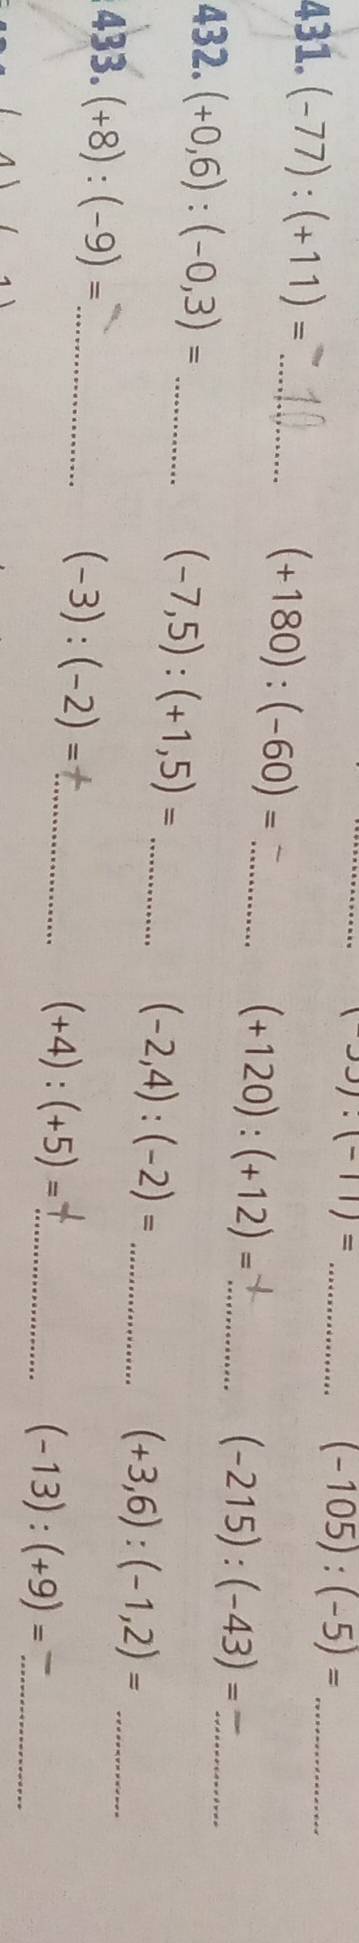 (-105) : (-5) = ............
431. (-77) : (+11) = - 10 (+180) : (-60) = - ............ (+120) : (+12) = + ............ (-215) : (-43) = - ............
432. (+0,6) : (-0,3) = ............ (-7,5) : (+1,5) = ............ (-2,4) : (-2) = ............ (+3,6) : (-1,2) = ............
433. (+8) : (-9) = - ............ (-3) : (-2) = + ............ (+4) : (+5) = + ............ (-13) : (+9) = - ............